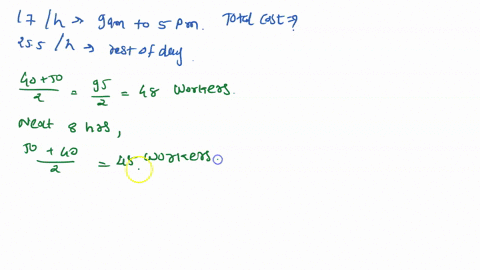 17 /h → 9am to 5 pm. Total cost = ?
25.5 /h → rest of day.
40+50/2 = 95/2 = 48 workers.
Next 8 hrs,
50 + 40/2 = 45 workers.